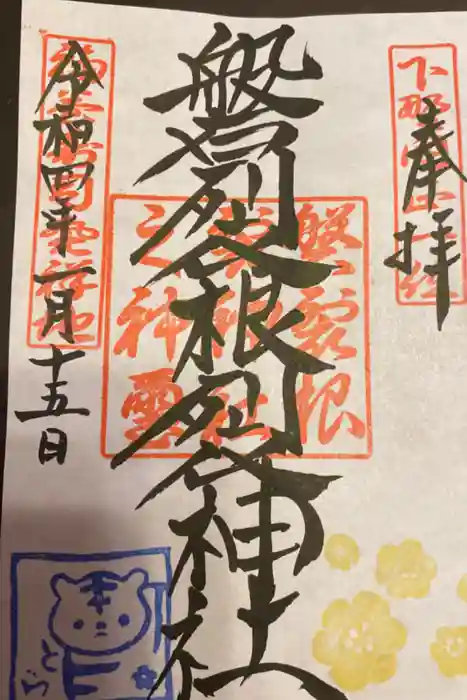 奉拝
磐裂根裂神社
令和四年一月十五日
磐裂根
裂神社
之神璽
とら